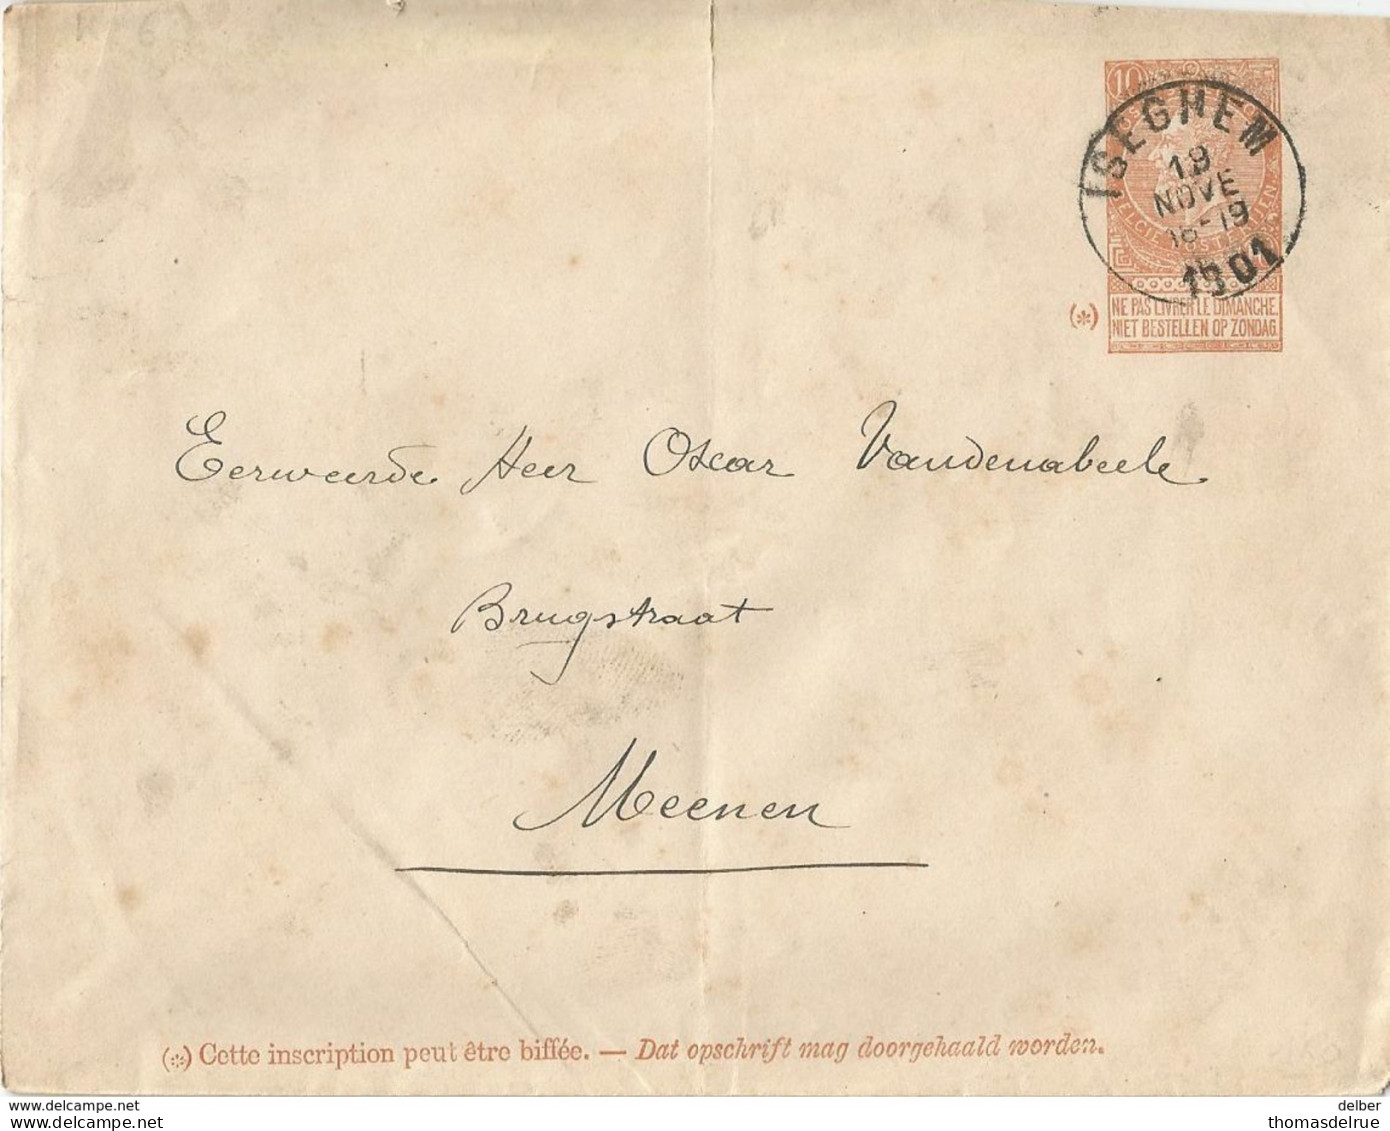 10
ISEGHEM
19
NOVE
18-19
1901
NE PAS LIVRER LE DIMANCHE.
(*) NIET BESTELLEN OP ZONDAG.
Eerweerde Heer Oscar Vandenabeele
Brugstraat
Meenen
(*) Cette inscription peut être biffée. — Dat opschrift mag doorgehaald worden.
www.delcampe.net
www.delcampe.net
delber
thomasdelrue